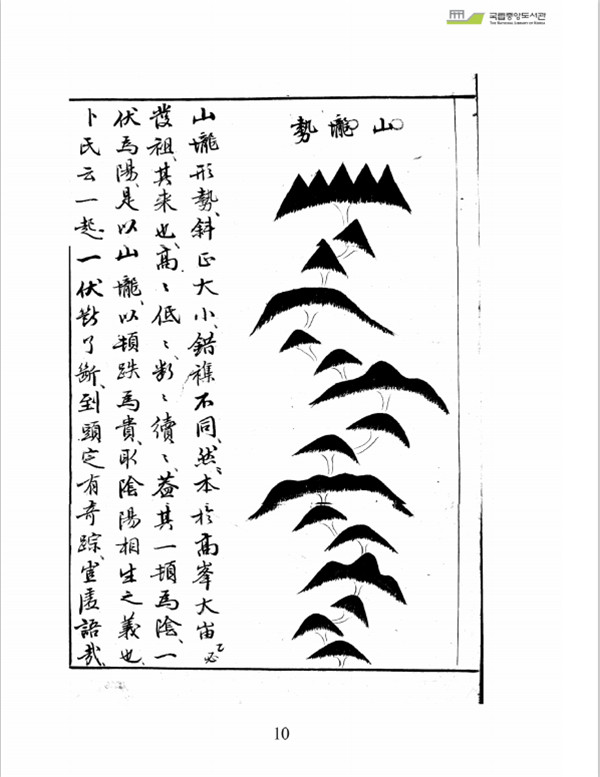 국립중앙도서관
THE NATIONAL LIBRARY OF KOREA
山壠勢
山壠形勢、斜正大小、錯襍不同、然、本於高峯大宙
發祖、其来也、高〻低〻、断〻續〻、盖其一頓爲陰、一
伏爲陽、是以山壠、以頓跌爲貴、取陰陽相生之義也、
卜氏云一起、一伏断了斷、到頭定有奇踪、豈虛語哉、
10